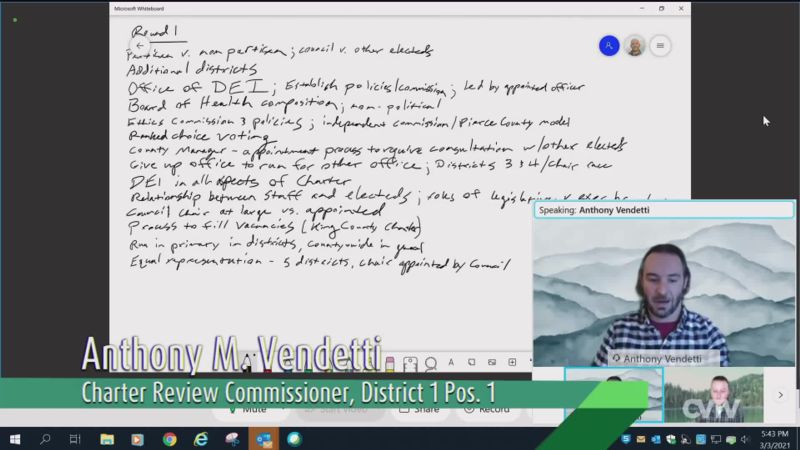 Microsoft Whiteboard
Round 1
Partisan v. non partisan; council v. other electeds
Additional districts
Office of DEI; Establish policies/commission; Led by appointed officer
Board of Health composition; non-political
Ethics Commission & policies; independent commission/Pierce County model
Ranked choice voting
County Manager - appointment process to require consultation w/other electeds
Give up office to run for other office; Districts 3 & 4/Chair race
DEI in all aspects of Charter
Relationship between staff and electeds; roles of legislative v exec
Council Chair at large vs. appointed
Process to fill vacancies (King County Charter)
Run in primary in districts, countywide in general
Equal representation - 5 districts, chair appointed by Council
Speaking: Anthony Vendetti
Anthony Vendetti
Anthony M. Vendetti
Charter Review Commissioner, District 1 Pos. 1
CVTV
Mute
Start video
Share
Record
5:43 PM
3/3/2021